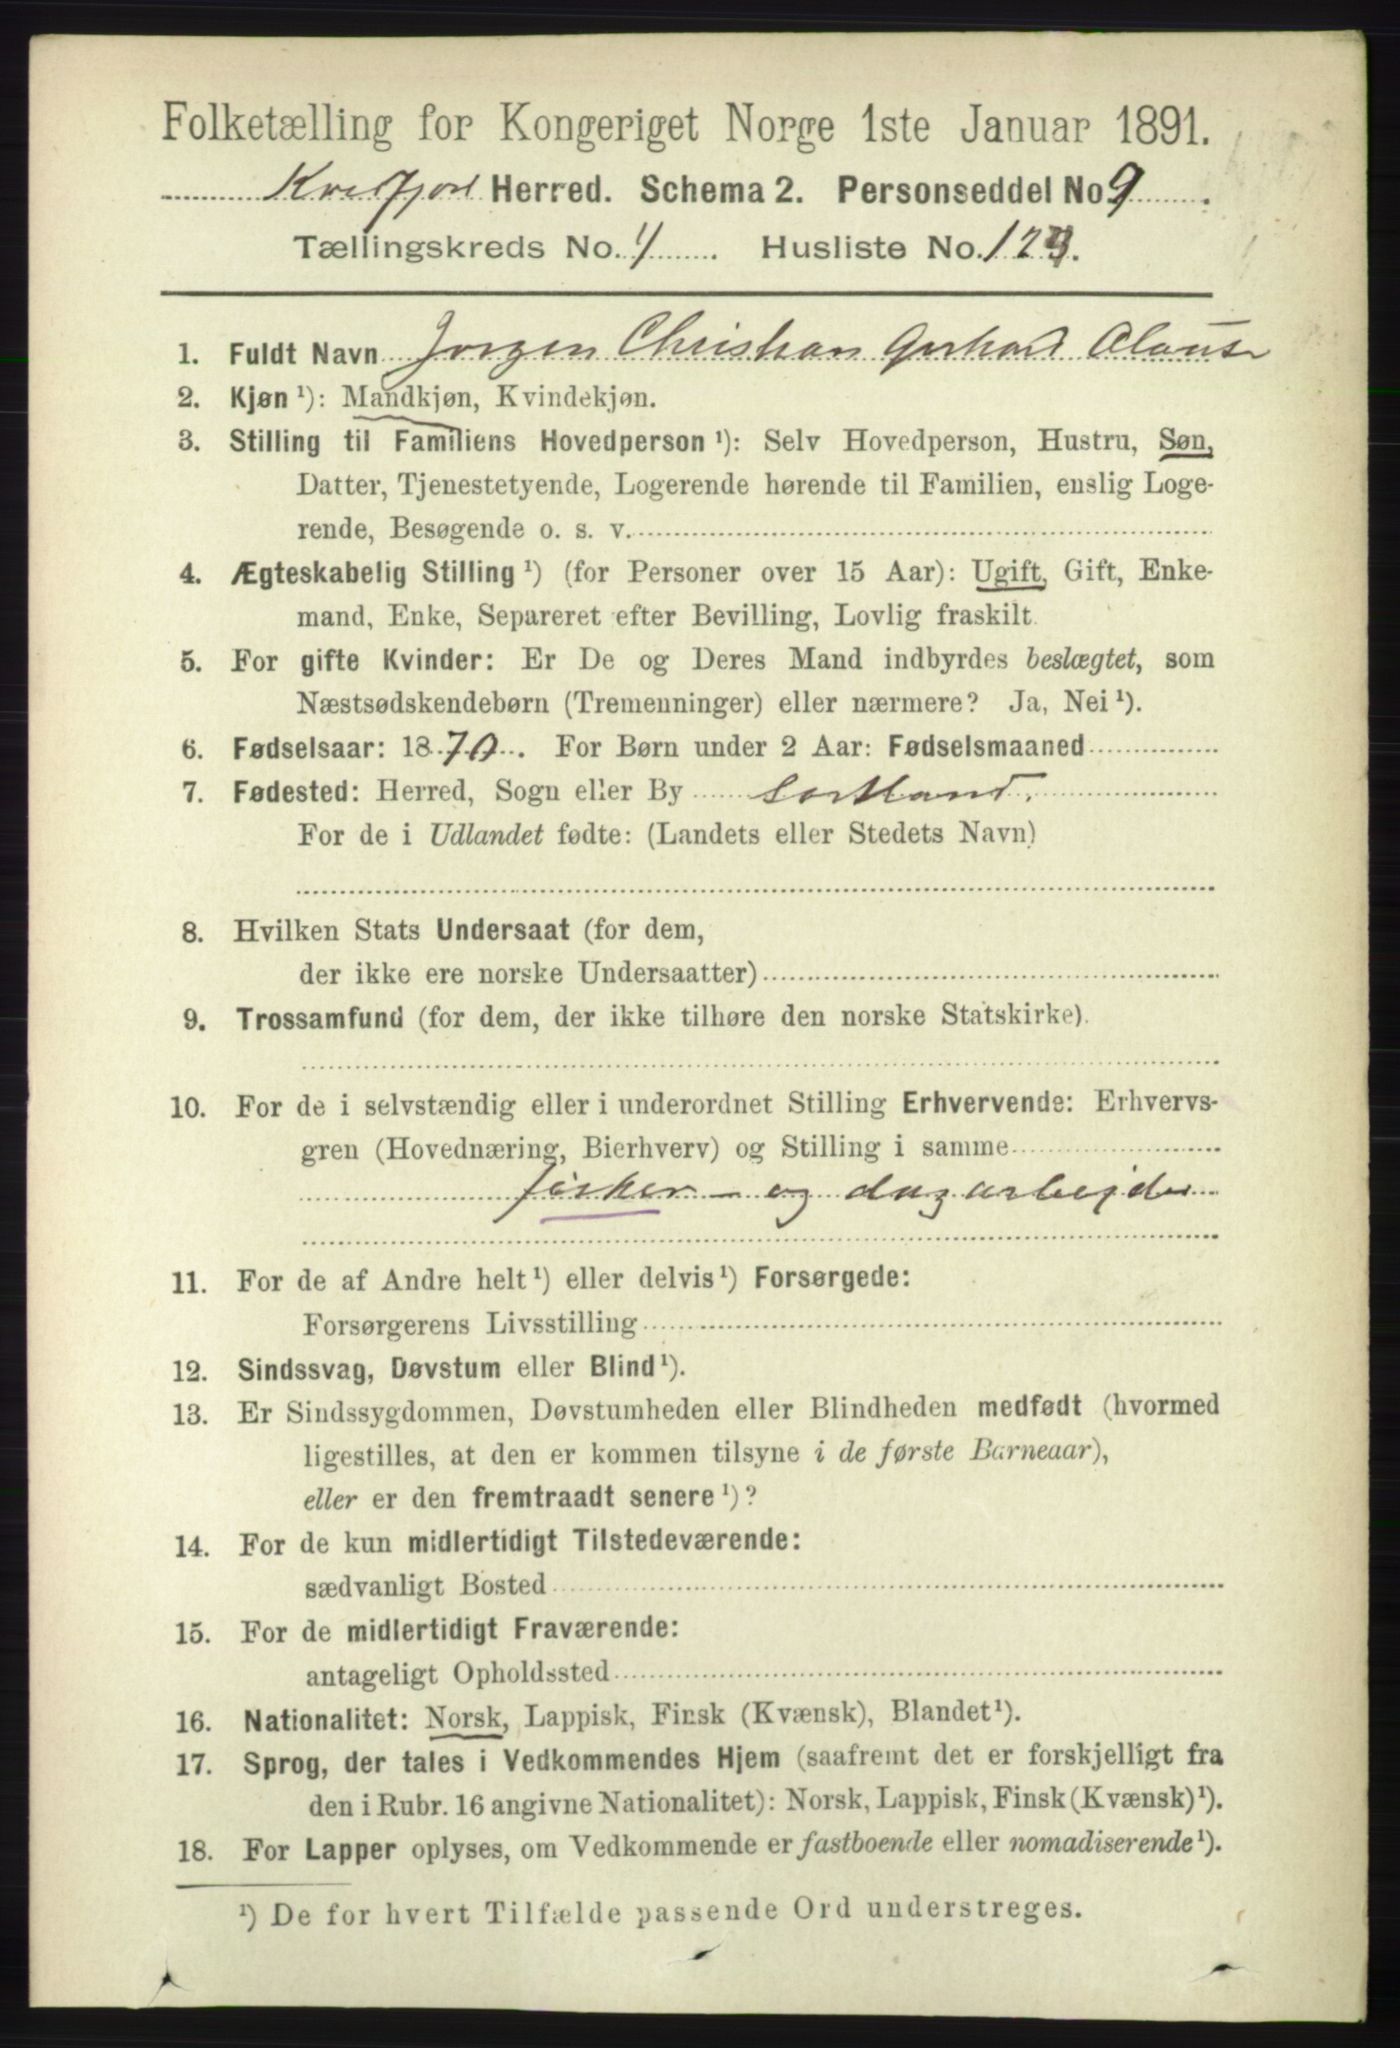 Folketælling for Kongeriget Norge 1ste Januar 1891.
Kvæfjord Herred. Schema 2. Personseddel No 9.
Tællingskreds No. 4. Husliste No. 123.
1. Fuldt Navn Jørgen Christian Gerhard Clausen
2. Kjøn ¹): Mandkjøn, Kvindekjøn.
3. Stilling til Familiens Hovedperson ¹): Selv Hovedperson, Hustru, Søn,
Datter, Tjenestetyende, Logerende hørende til Familien, enslig Loge-
rende, Besøgende o. s. v.
4. Ægteskabelig Stilling ¹) (for Personer over 15 Aar): Ugift, Gift, Enke-
mand, Enke, Separeret efter Bevilling, Lovlig fraskilt.
5. For gifte Kvinder: Er De og Deres Mand indbyrdes beslægtet, som
Næstsødskendebørn (Tremenninger) eller nærmere? Ja, Nei ¹).
6. Fødselsaar: 1870. For Børn under 2 Aar: Fødselsmaaned
7. Fødested: Herred, Sogn eller By Sortland.
For de i Udlandet fødte: (Landets eller Stedets Navn)
8. Hvilken Stats Undersaat (for dem,
der ikke ere norske Undersaatter)
9. Trossamfund (for dem, der ikke tilhøre den norske Statskirke).
10. For de i selvstændig eller i underordnet Stilling Erhvervende: Erhvervs-
gren (Hovednæring, Bierhverv) og Stilling i samme
fisker- og dagarbejder
11. For de af Andre helt ¹) eller delvis ¹) Forsørgede:
Forsørgerens Livsstilling
12. Sindssvag, Døvstum eller Blind ¹).
13. Er Sindssygdommen, Døvstumheden eller Blindheden medfødt (hvormed
ligestilles, at den er kommen tilsyne i de første Barneaar),
eller er den fremtraadt senere ¹)?
14. For de kun midlertidigt Tilstedeværende:
sædvanligt Bosted
15. For de midlertidigt Fraværende:
antageligt Opholdssted
16. Nationalitet: Norsk, Lappisk, Finsk (Kvænsk), Blandet ¹).
17. Sprog, der tales i Vedkommendes Hjem (saafremt det er forskjelligt fra
den i Rubr. 16 angivne Nationalitet): Norsk, Lappisk, Finsk (Kvænsk) ¹).
18. For Lapper oplyses, om Vedkommende er fastboende eller nomadiserende ¹).
¹) De for hvert Tilfælde passende Ord understreges.